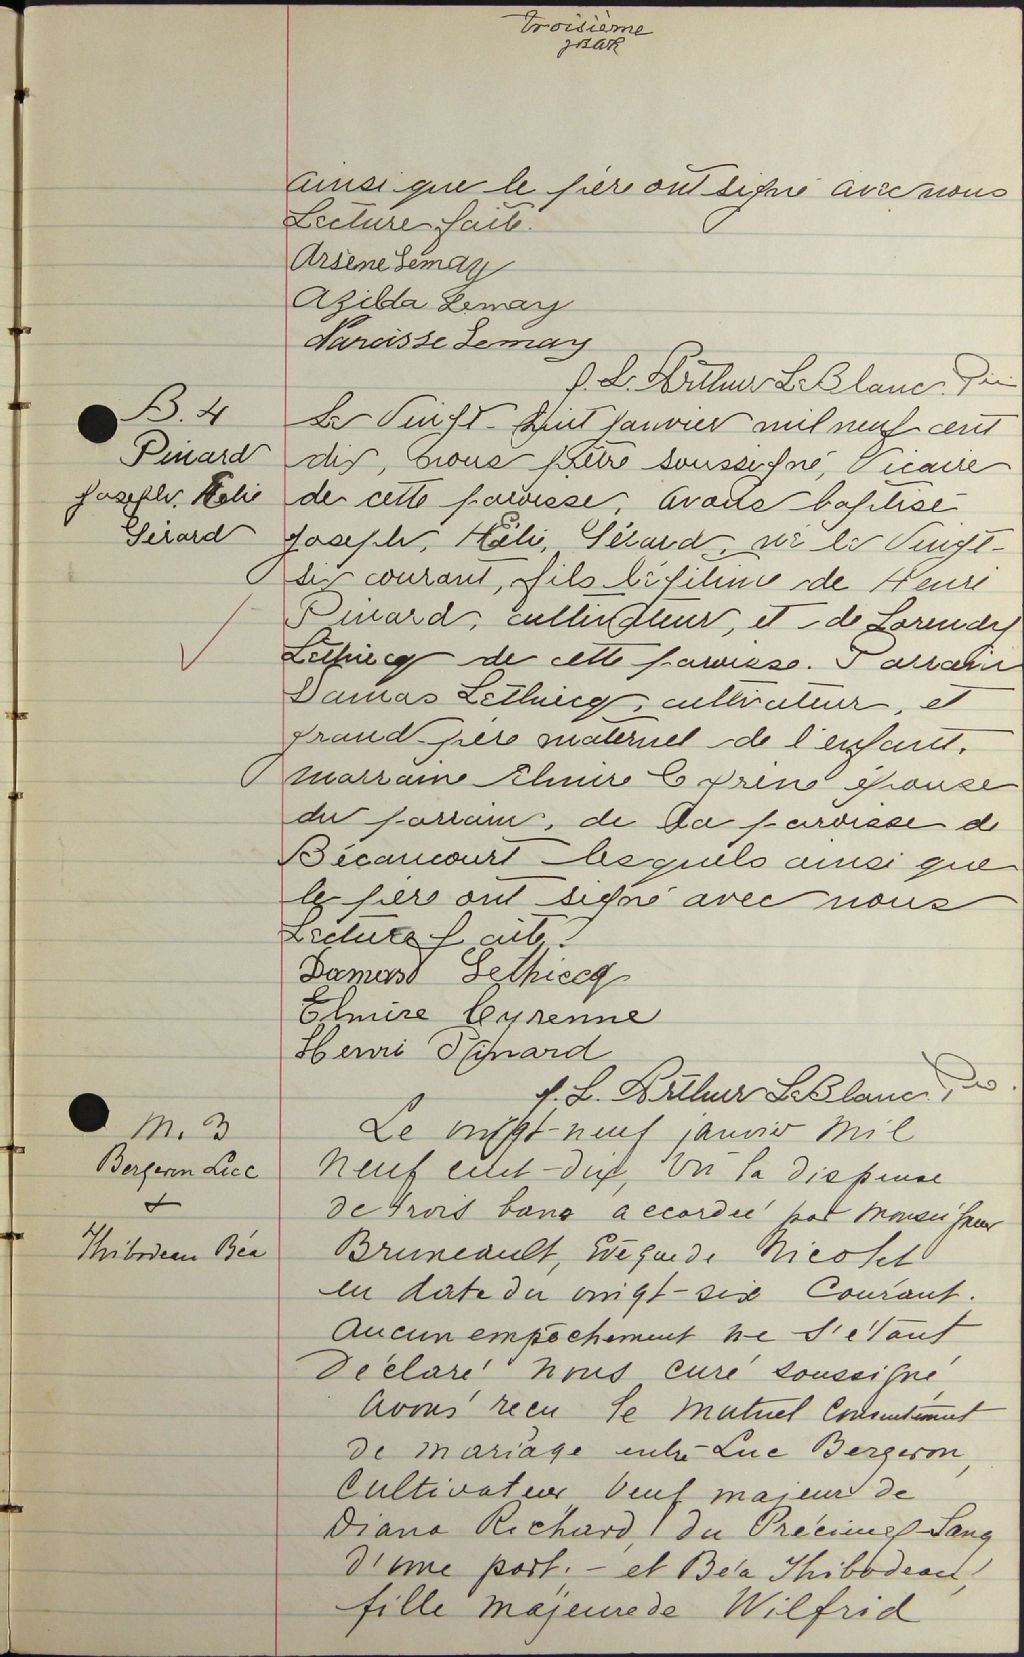 troisième
ainsi que le père ont signé avec nous
Lecture faite.
Arsène Lemay
Azilda Lemay
Narcisse Lemay
J. L. Arthur LeBlanc. Ptre
B. 4
Pinard
Joseph, Hélie
Gérard
Le Vingt-huit janvier mil neuf cent
dix, nous prêtre soussigné, Vicaire
de cette paroisse, avons baptisé
Joseph, Hélie, Gérard, né le Vingt-
six courant, fils légitime de Henri
Pinard, cultivateur, et de
Lethiecq de cette paroisse. Parrain
Damas Lethiecq, cultivateur, et
grand-père maternel de l'enfant.
Marraine Elmire Cyrène épouse
du parrain, de la paroisse de
Bécancourt lesquels ainsi que
le père ont signé avec nous
Lecture faite.
Damas Lethiecq
Elmire Cyrenne
Henri Pinard
J. L. Arthur LeBlanc. Ptre.
M. 3
Bergeron Luc
+
Thibodeau Béa
Le vingt-neuf janvier mil
neuf cent-dix, vu la dispense
de trois bans accordée par Monseigneur
Bruneault, Evêque de Nicolet
en date du vingt-six Courant.
Aucun empêchement ne s'étant
Déclaré nous curé soussigné
Avons recu le mutuel Consentement
de mariage entre Luc Bergeron,
Cultivateur, Veuf majeur de
Diana Richard, du Précieux-Sang
d'une part. - et Béa Thibodeau,
fille majeure de Wilfrid